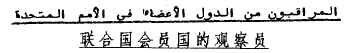 المراقبون من الدول الأعضاء في الأمم المتحدة
联合国会员国的观察员